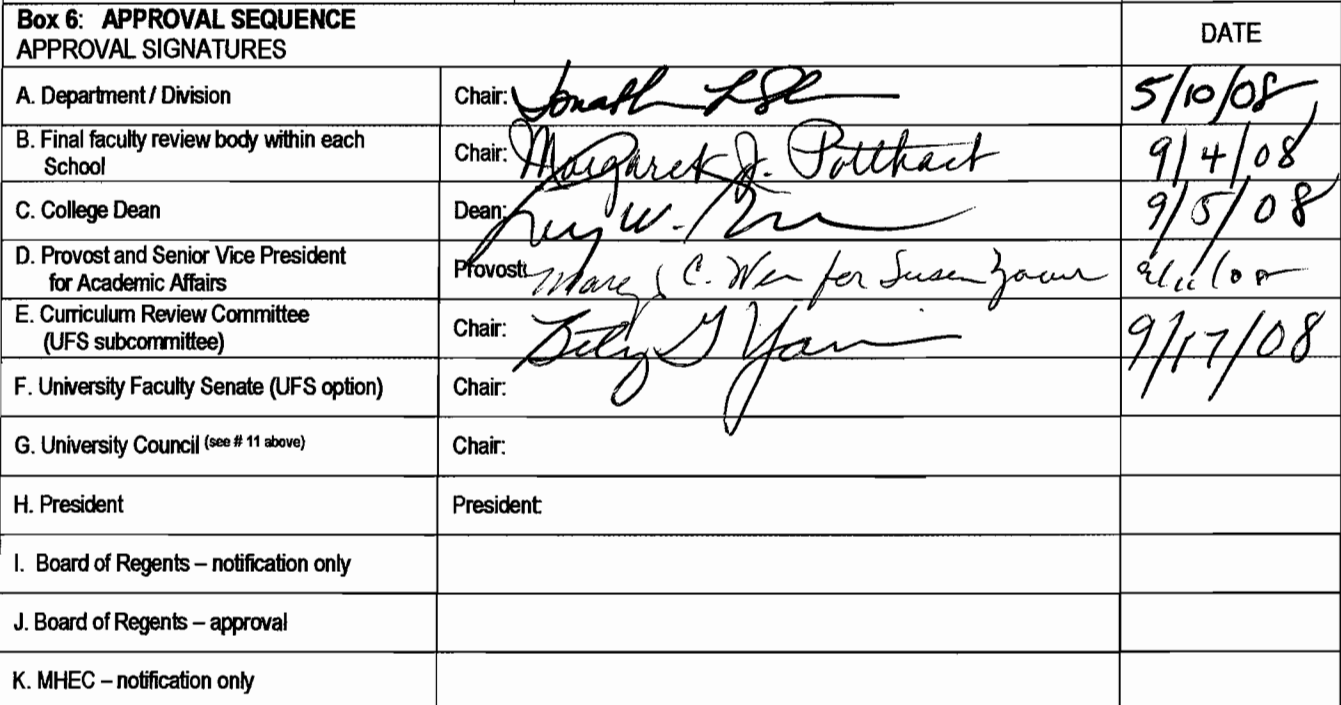 Box 6: APPROVAL SEQUENCE
APPROVAL SIGNATURES
DATE
A. Department / Division
Chair:
5/10/08
B. Final faculty review body within each
School
Chair: Margaret J. Potthast
9/4/08
C. College Dean
Dean: W.
9/5/08
D. Provost and Senior Vice President
for Academic Affairs
Provost: C. for Susan
E. Curriculum Review Committee
(UFS subcommittee)
Chair: G
9/17/08
F. University Faculty Senate (UFS option)
Chair:
G. University Council (see # 11 above)
Chair:
H. President
President:
I. Board of Regents – notification only
J. Board of Regents – approval
K. MHEC – notification only